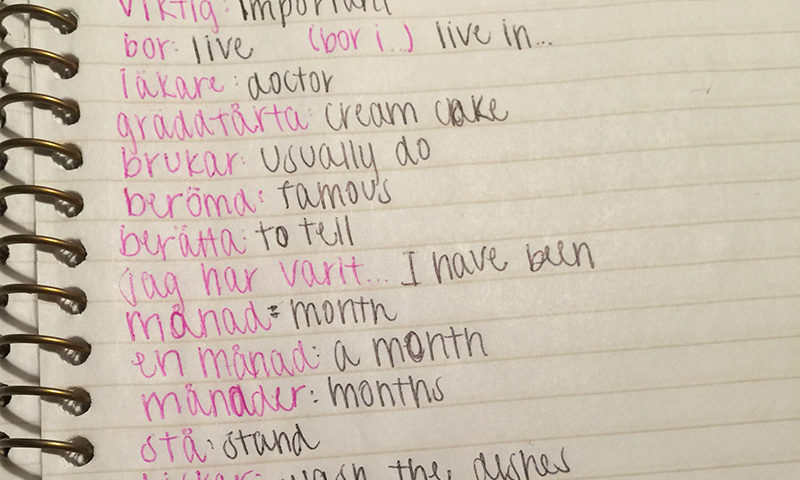 viktig: important
bor: live (bor i..) live in...
läkare: doctor
gräddtårta: cream cake
brukar: usually do
beröma: famous
berätta: to tell
jag har varit... I have been
månad: month
en månad: a month
månader: months
stå: stand
wash the dishes